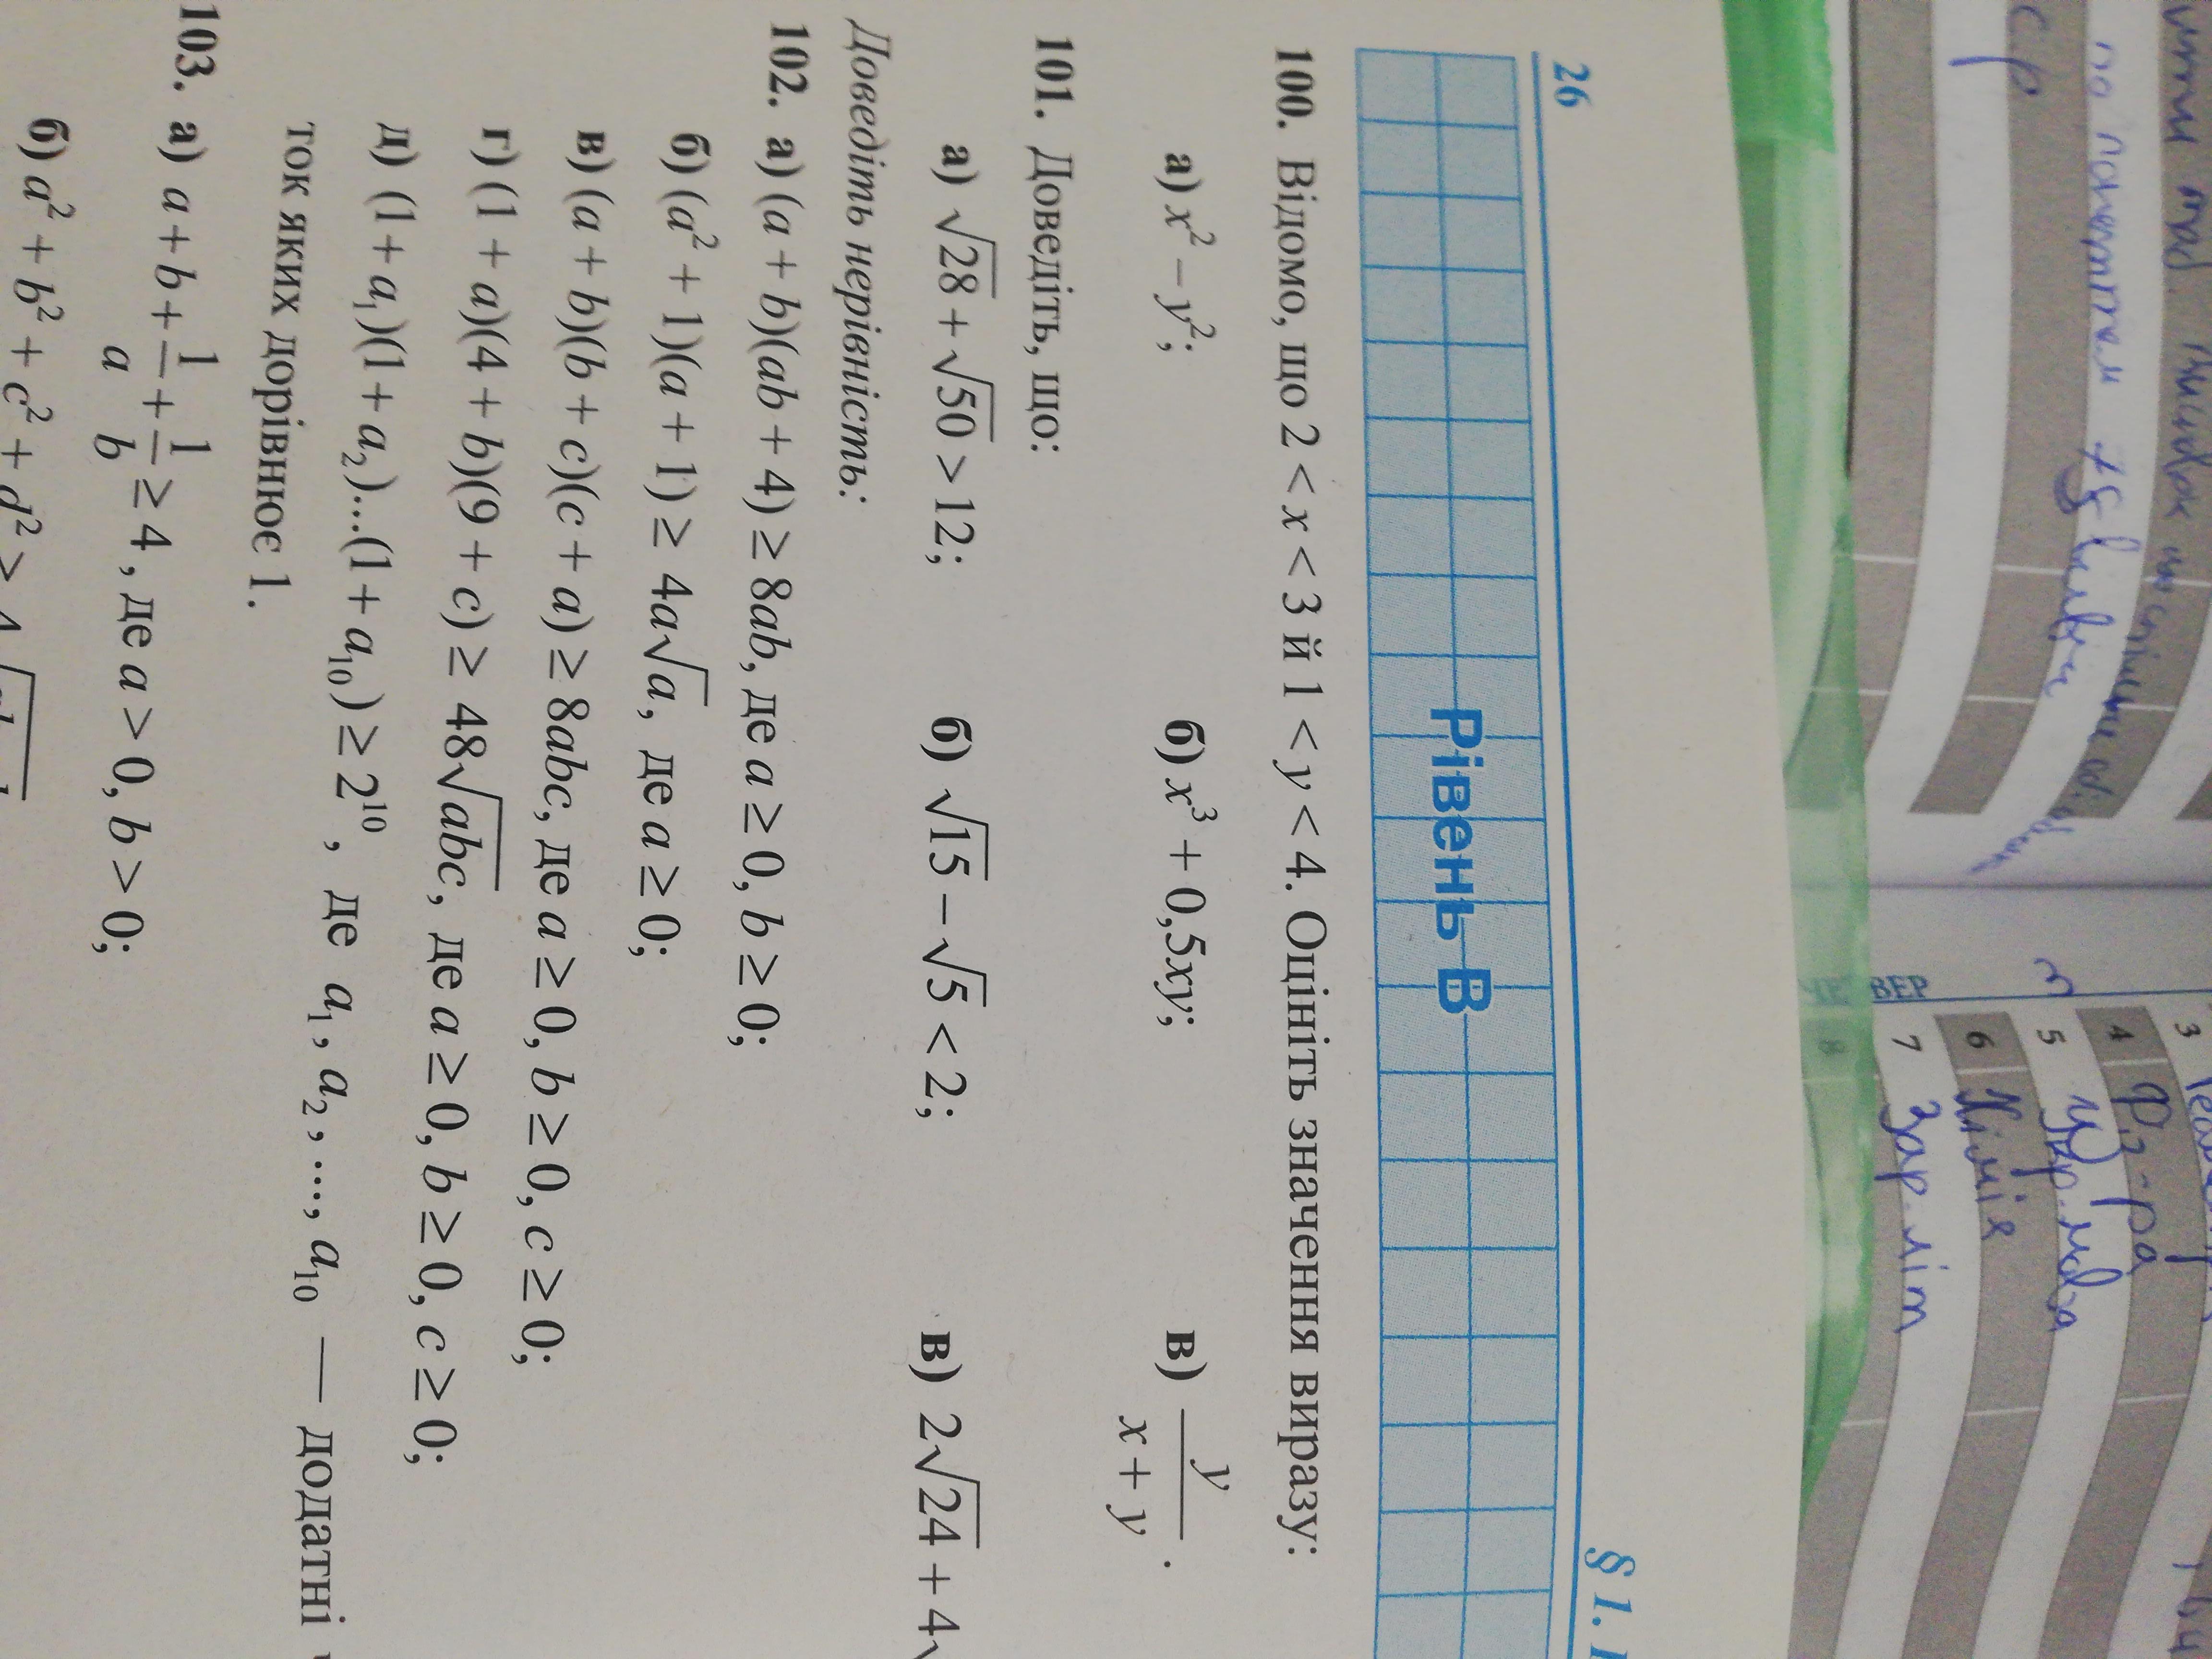 26
§ 1.
Рівень В
100. Відомо, що 2 < x < 3 й 1 < y < 4. Оцініть значення виразу:
а) x² – y²; б) x³ + 0,5xy; в) y/(x + y).
101. Доведіть, що:
а) √28 + √50 > 12; б) √15 – √5 < 2; в) 2√24 + 4√
Доведіть нерівність:
102. а) (a + b)(ab + 4) ≥ 8ab, де a ≥ 0, b ≥ 0;
б) (a² + 1)(a + 1) ≥ 4a√a, де a ≥ 0;
в) (a + b)(b + c)(c + a) ≥ 8abc, де a ≥ 0, b ≥ 0, c ≥ 0;
г) (1 + a)(4 + b)(9 + c) ≥ 48√abc, де a ≥ 0, b ≥ 0, c ≥ 0;
д) (1 + a₁)(1 + a₂)...(1 + a₁₀) ≥ 2¹⁰, де a₁, a₂, ..., a₁₀ — додатні
ток яких дорівнює 1.
103. а) a + b + 1/a + 1/b ≥ 4, де a > 0, b > 0;
б) a² + b² + c² + d² ≥ 4
ВЕР
3
4
5 Укр.мова
6 Хімія
7 Зар літ
8